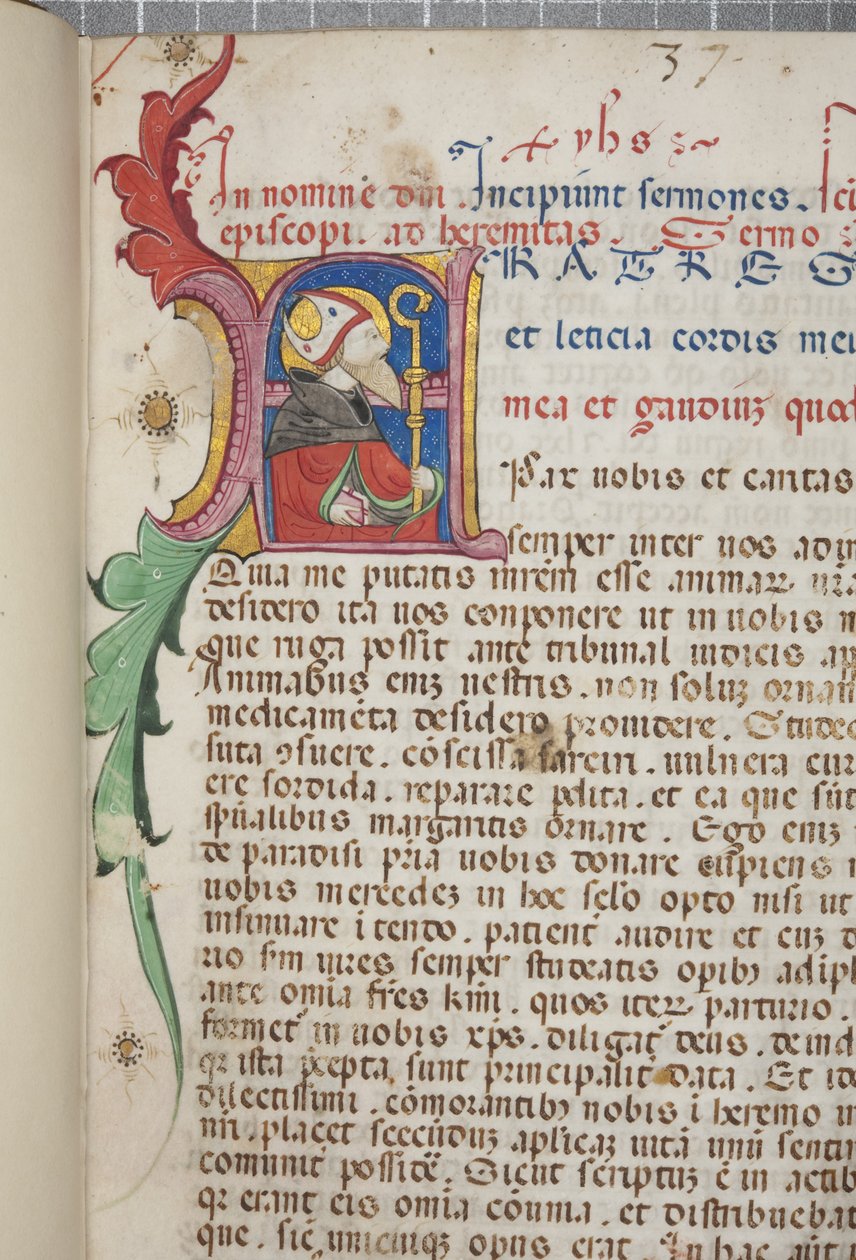 37
yhs
In nomine dnī Incipiunt sermones. s̄ci
episcopi. ad heremitas. Sermo
FRATRES
et leticia cordis mei
mea et gaudiuʒ quod
Pax uobis et caritas
semper inter uos adim
Quia me putatis nrēm esse animaꝝ urā
desidero ita uos conponere ut in uobis n
que ruga possit ante tribunal iudicis ap
Animabus eniʒ uestris. non soluʒ ornam
medicamēta desidero prouidere. Studeo
suta ꝯsuere. cōscissa sarcire. uulnera cur
ere sordida. reparare pdita. et ea que sūt
spūalibus margaritis ornare. Ego eniʒ
de paradisi pria uobis donare cupiens
uobis mercedeʒ in hoc sclo opto nisi ut
insinuare ītendo. patient audire et eiꝫ
rio sm uires semper studeatis opibꝫ adipl
ante omia frēs kmī. quos iteꝝ parturio.
formet in uobis xps. diligat deus. deind
qꝛ ista pcepta sunt principalit data. Et id
dilectissimi. cōmorantibꝫ nobis ī heremo
nī. placet secūduʒ aplicaʒ uitā
comunit possitē. Sicut scriptuʒ ē in actib
qꝛ erant eis omia cōunia. et distribuebat
que. sic unicuiqꝫ opus erat. In hac